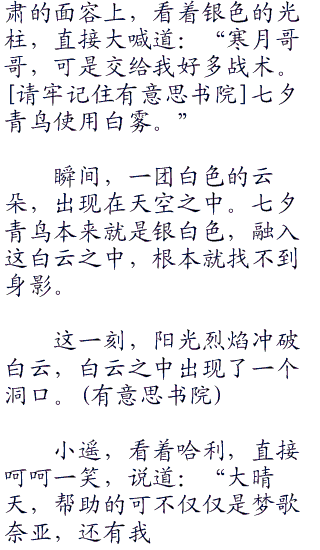 肃的面容上，看着银色的光
柱，直接大喊道：“寒月哥
哥，可是交给我好多战术。
[请牢记住有意思书院]七夕
青鸟使用白雾。”
瞬间，一团白色的云
朵，出现在天空之中。七夕
青鸟本来就是银白色，融入
这白云之中，根本就找不到
身影。
这一刻，阳光烈焰冲破
白云，白云之中出现了一个
洞口。(有意思书院)
小遥，看着哈利，直接
呵呵一笑，说道：“大晴
天，帮助的可不仅仅是梦歌
奈亚，还有我